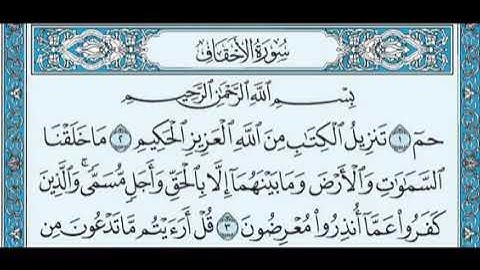 سُورَةُ الأَحْقَافِ
بِسْمِ اللَّهِ الرَّحْمَٰنِ الرَّحِيمِ
حمٓ ١ تَنزِيلُ الْكِتَٰبِ مِنَ اللَّهِ الْعَزِيزِ الْحَكِيمِ ٢ مَا خَلَقْنَا
السَّمَٰوَٰتِ وَالْأَرْضَ وَمَا بَيْنَهُمَا إِلَّا بِالْحَقِّ وَأَجَلٍ مُّسَمًّى ۚ وَالَّذِينَ
كَفَرُوا۟ عَمَّا أُنذِرُوا۟ مُعْرِضُونَ ٣ قُلْ أَرَءَيْتُم مَّا تَدْعُونَ مِن